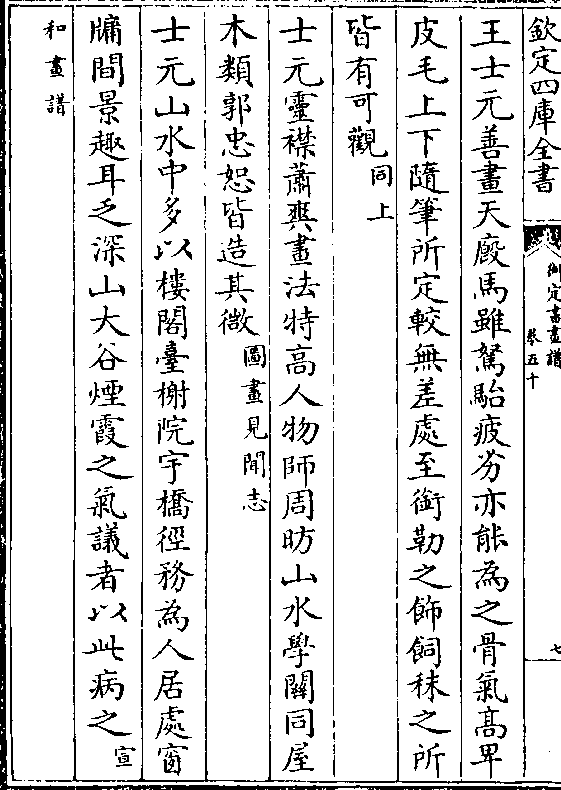 欽定四庫全書
御定書畫譜
卷五十
七
王士元善畫天廄馬雖駑駘疲劣亦能為之骨氣高畀
皮毛上下隨筆所定較無差處至銜勒之飾飼秣之所
皆有可觀同上
士元靈襟蕭爽畫法特高人物師周昉山水學關同屋
木類郭忠恕皆造其微圖畫見聞志
士元山水中多以樓閣臺榭院宇橋徑務為人居處窗
牖間景趣耳乏深山大谷煙霞之氣議者以此病之宣
和畫譜